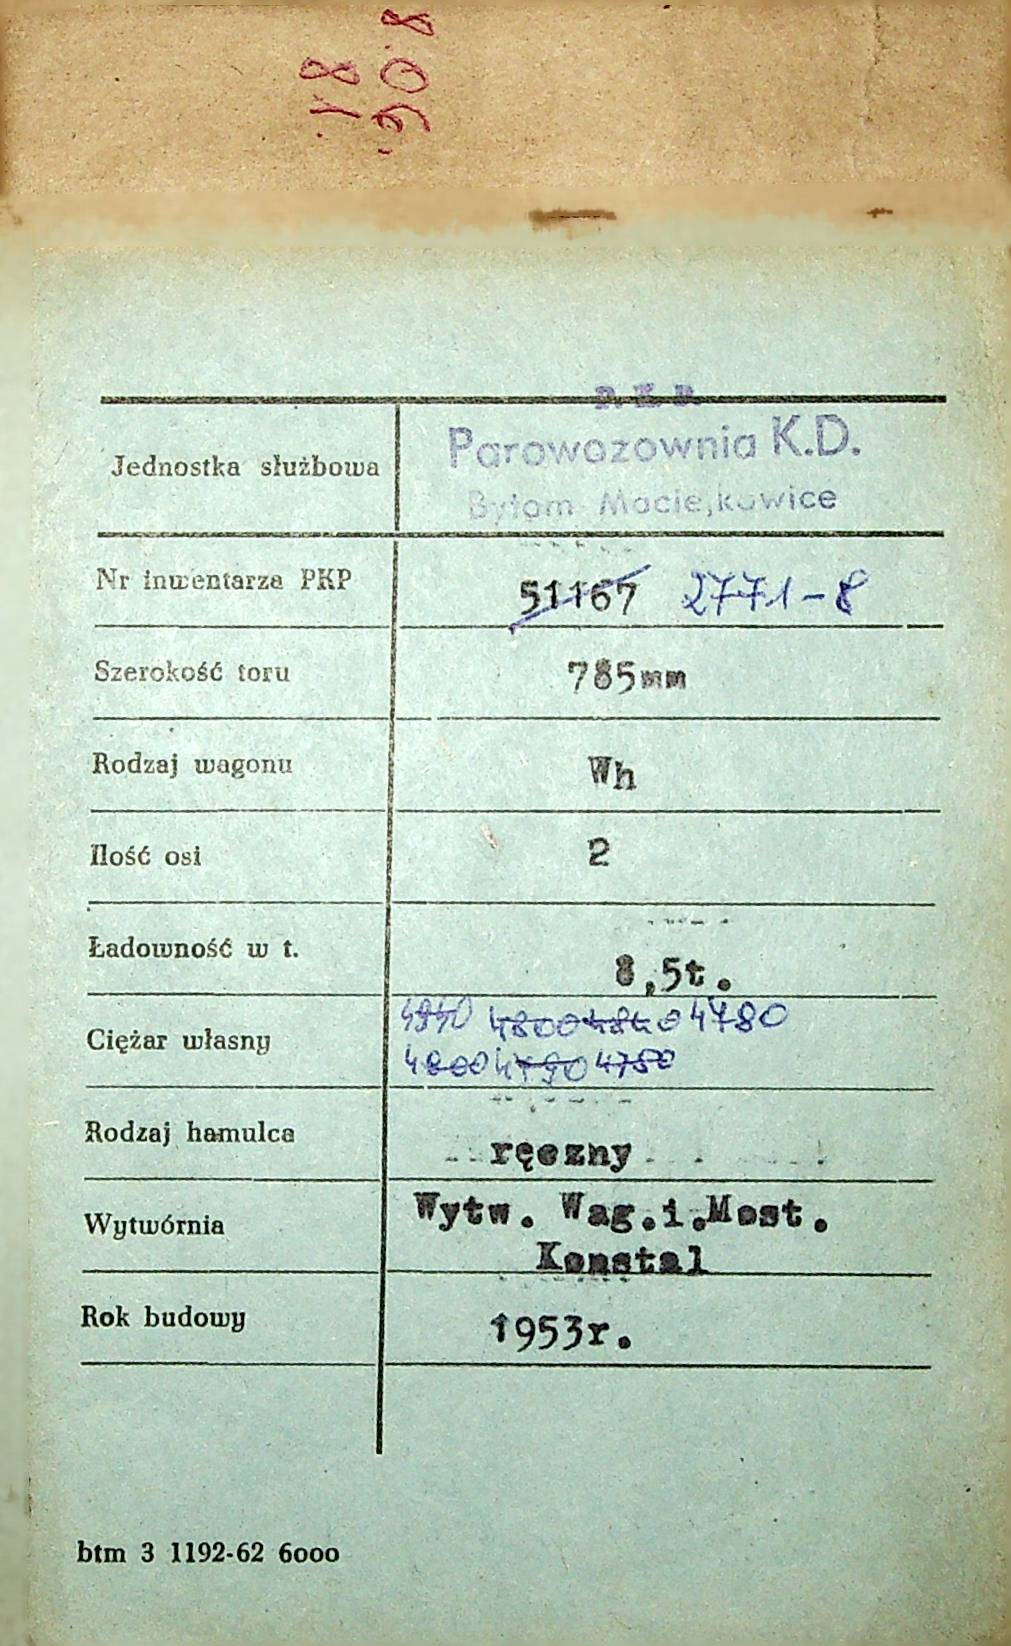 P.K.P.
Jednostka służbowa Parowozownia K.D.
Bytom Maciejkowice
Nr inwentarza PKP 51167 2771-8
Szerokość toru 785mm
Rodzaj wagonu Wh
Ilość osi 2
Ładowność w t. 8,5t.
4940 4800 4840 4780
Ciężar własny
4800 4790 4750
Rodzaj hamulca ręczny
Wytw. Wag.i.Most.
Wytwórnia
Konstal
Rok budowy 1953r.
btm 3 1192-62 6000